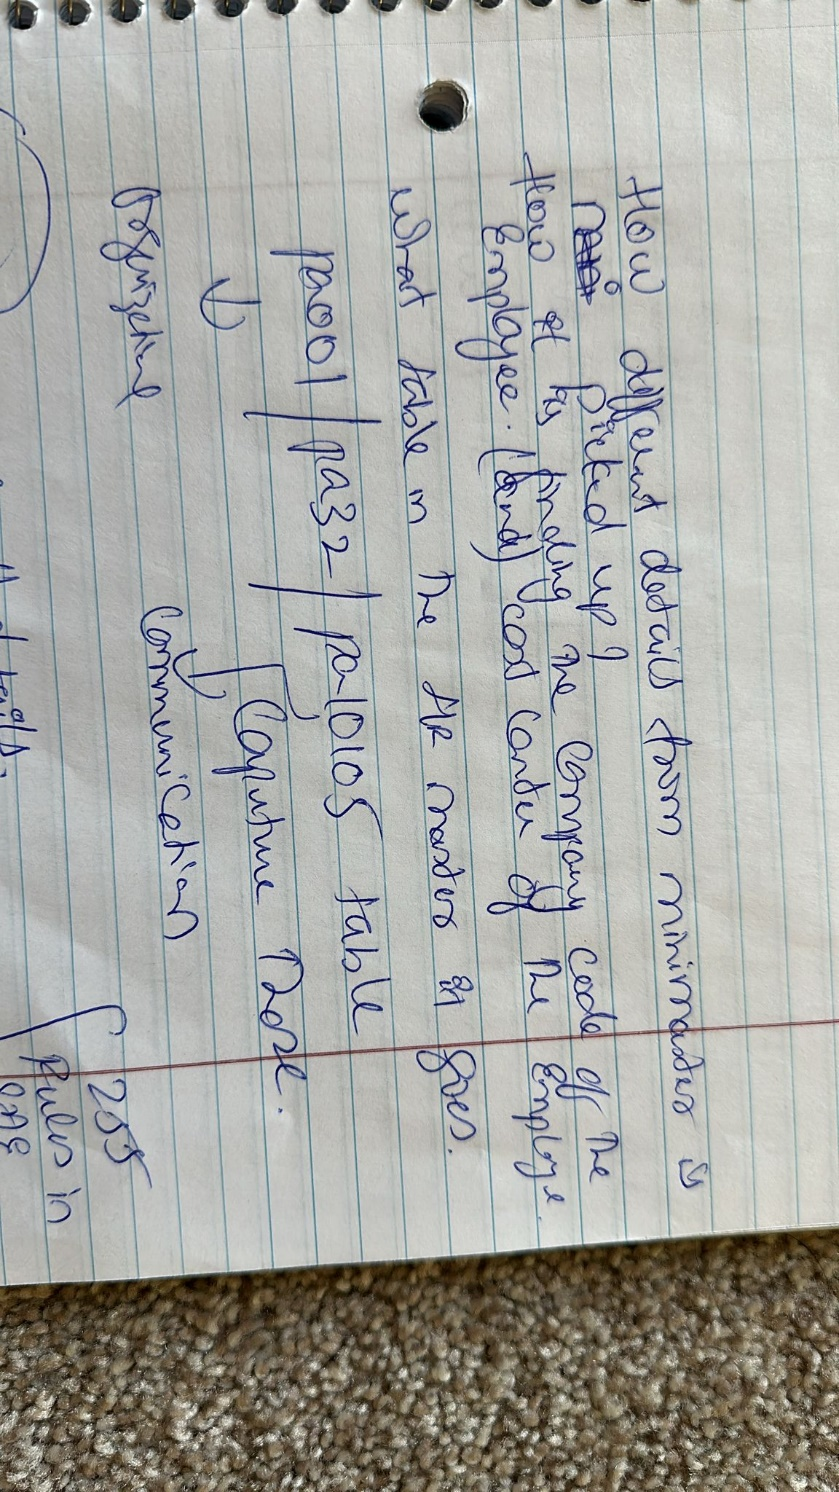 How different details from minimaster is
picked up?
How it is finding the Company Code of the
Employee. (and) cost Center of the Employe.
What table in the HR master it goes.
pa001 / pa32 / pa10105 table
Capture Those.
↓ ↓
Communication
255
Rules in